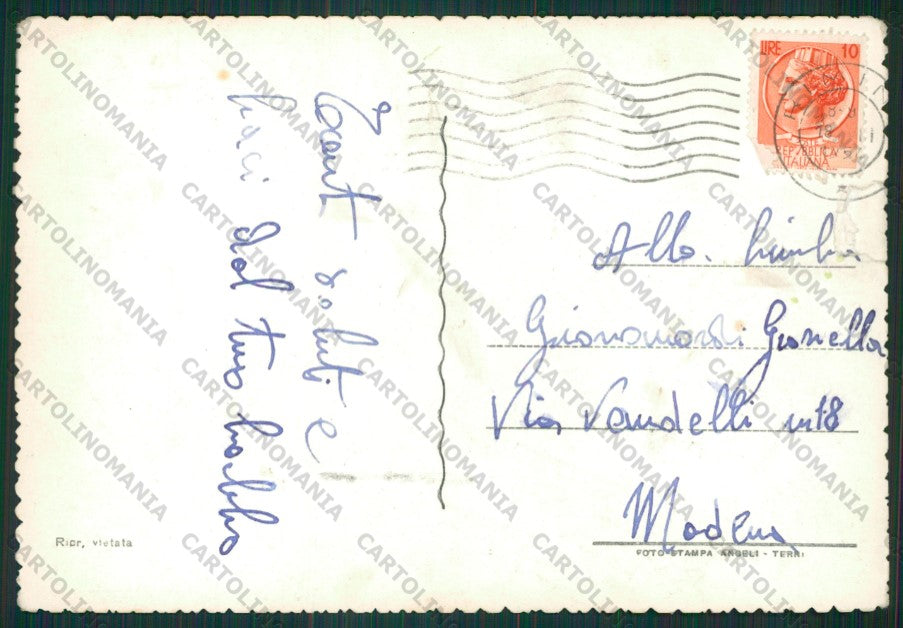 Tanti saluti e
baci dal tuo babbo
LIRE 10
REPUBBLICA
ITALIANA
Alla bimba
Giovanardi Gionella
Via Vandelli n 18
Modena
FOTO STAMPA ANGELI - TERNI
Ripr, vietata
CARTOLINOMANIA